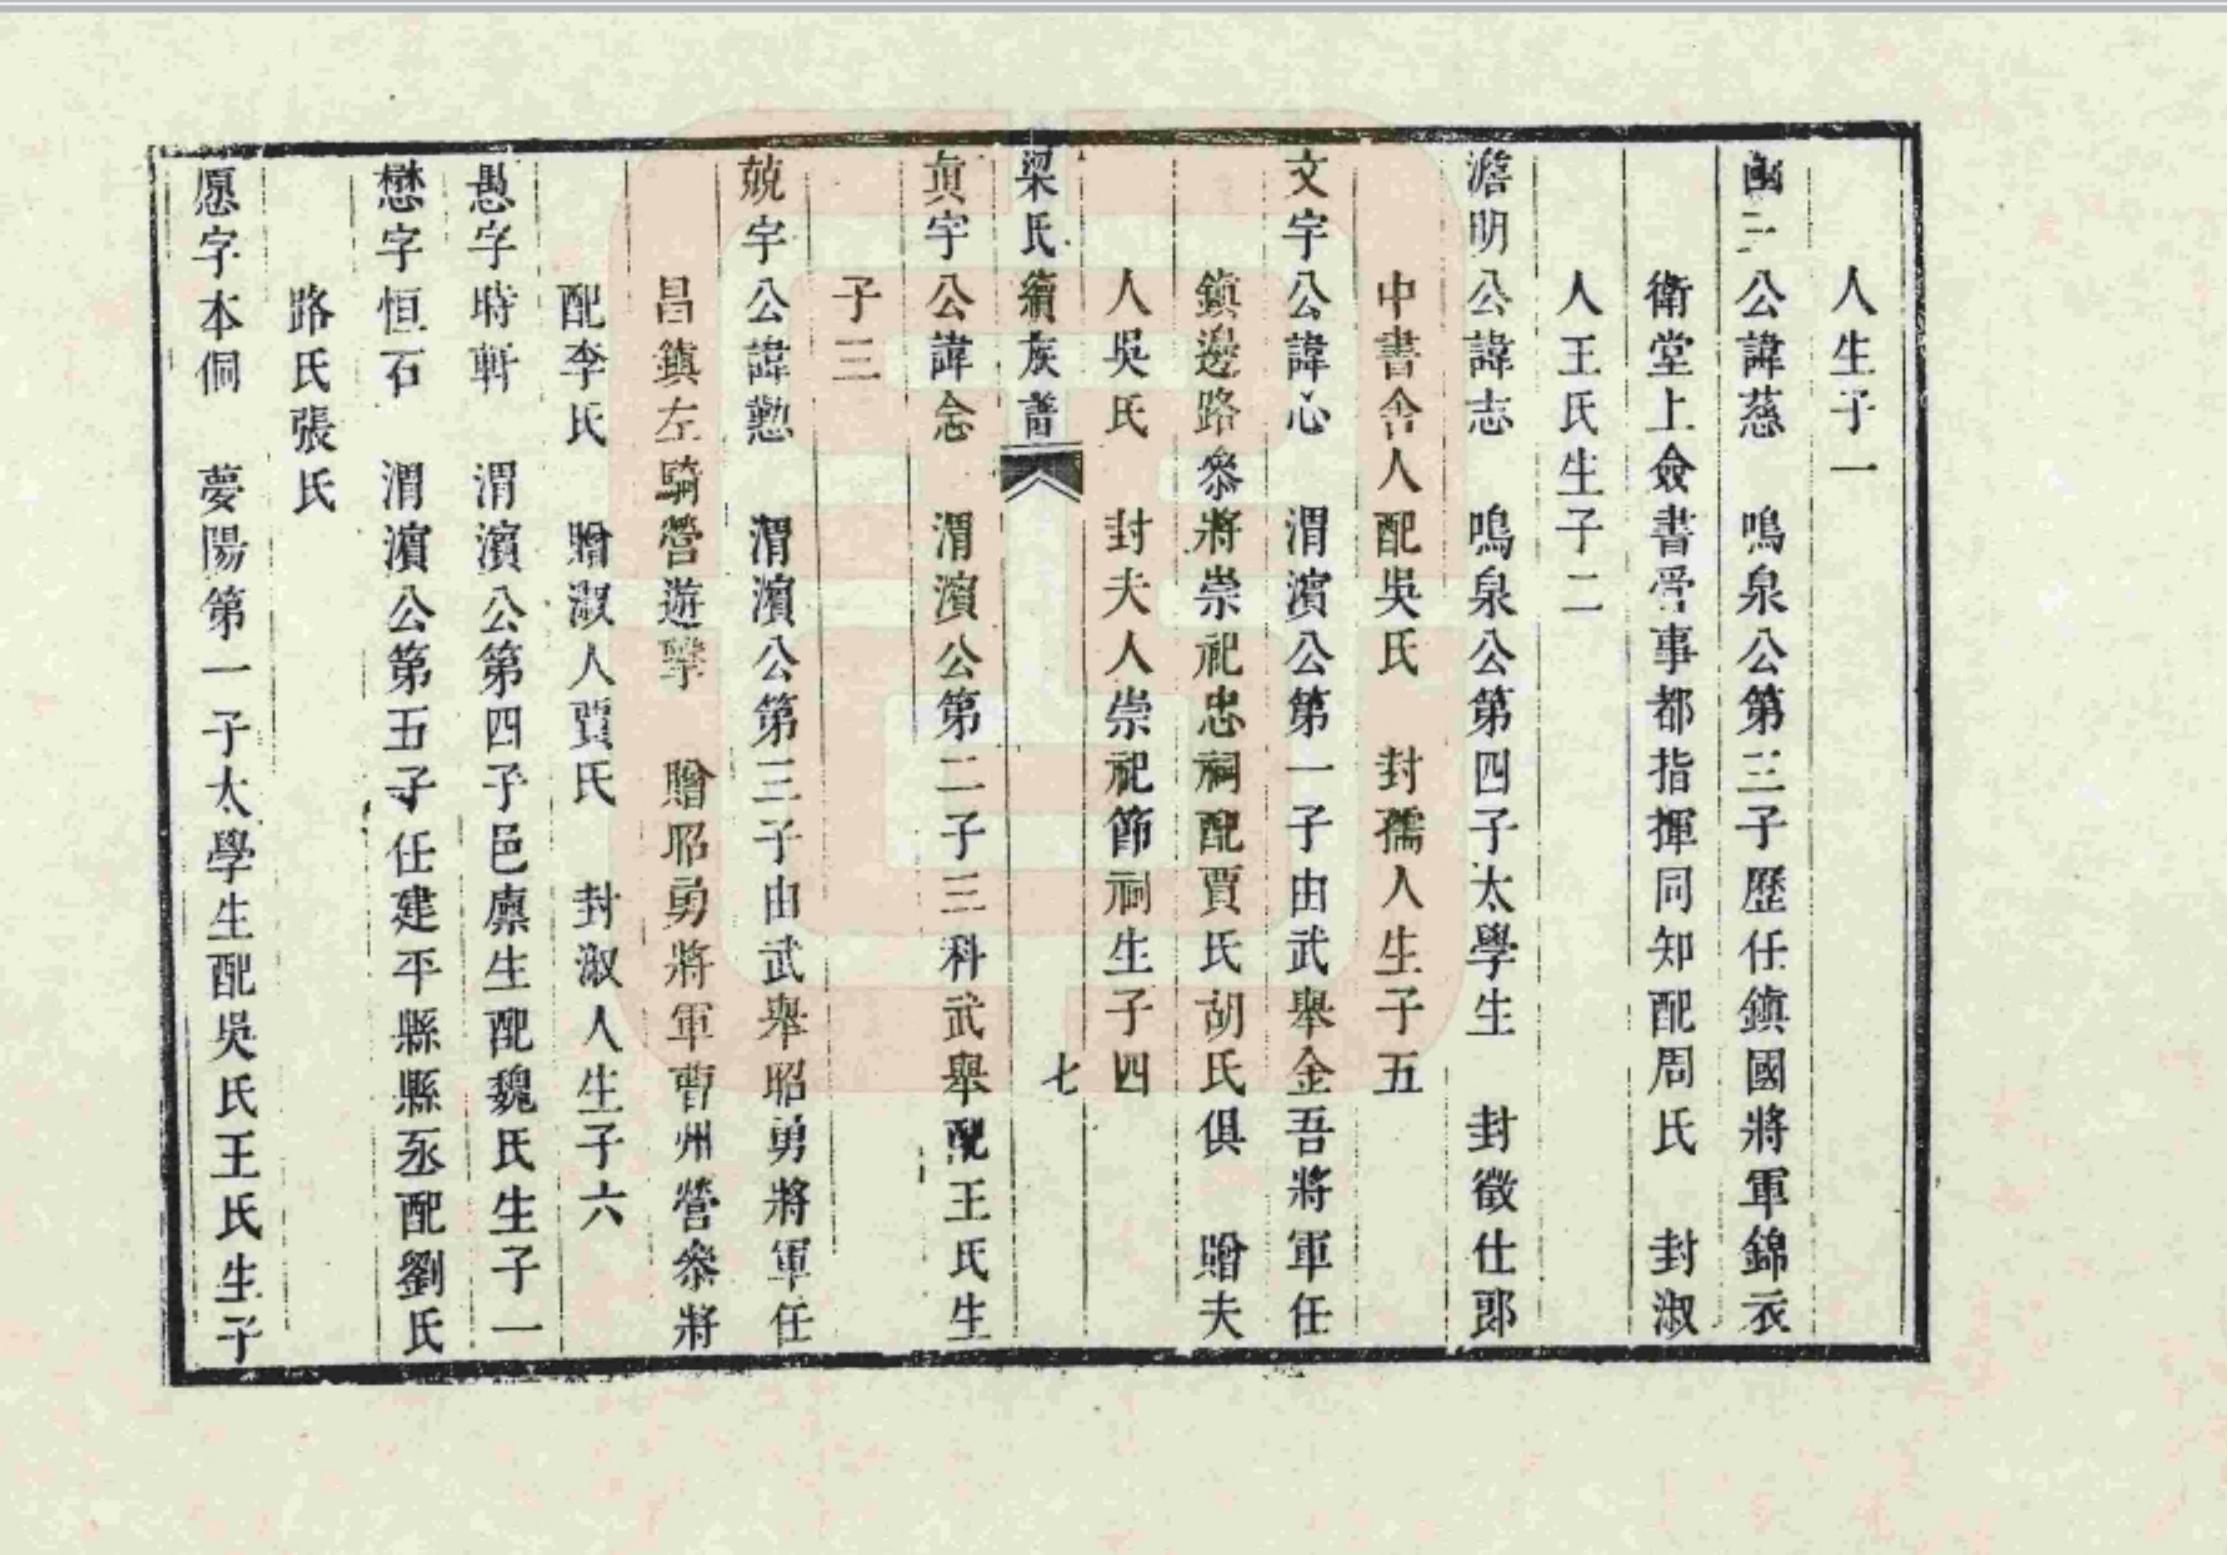 人生子一
公諱 鳴泉公第三子歷任鎮國將軍錦衣
衛堂上僉書受事都指揮同知配周氏 封淑
人王氏生子二
澹明公諱志 鳴泉公第四子太學生 封徵仕郎
中書舍人配吳氏 封孺人生子五
文宇公諱心 渭濱公第一子由武舉金吾將軍任
鎮邊路叅將崇祀忠祠配賈氏胡氏俱 贈夫
人吳氏 封夫人崇祀節祠生子四
梁氏續族譜 七
真宇公諱念 渭濱公第二子三科武舉配王氏生
子三
兢宇公諱懃 渭濱公第三子由武舉昭勇將軍任
昌鎮左騎營遊擊 贈昭勇將軍曹州營叅將
配李氏 贈淑人賈氏 封淑人生子六
愚字時軒 渭濱公第四子邑廪生配魏氏生子一
懋字恒石 渭濱公第五子任建平縣縣丞配劉氏
路氏張氏
愿字本侗 夢陽第一子太學生配吳氏王氏生子